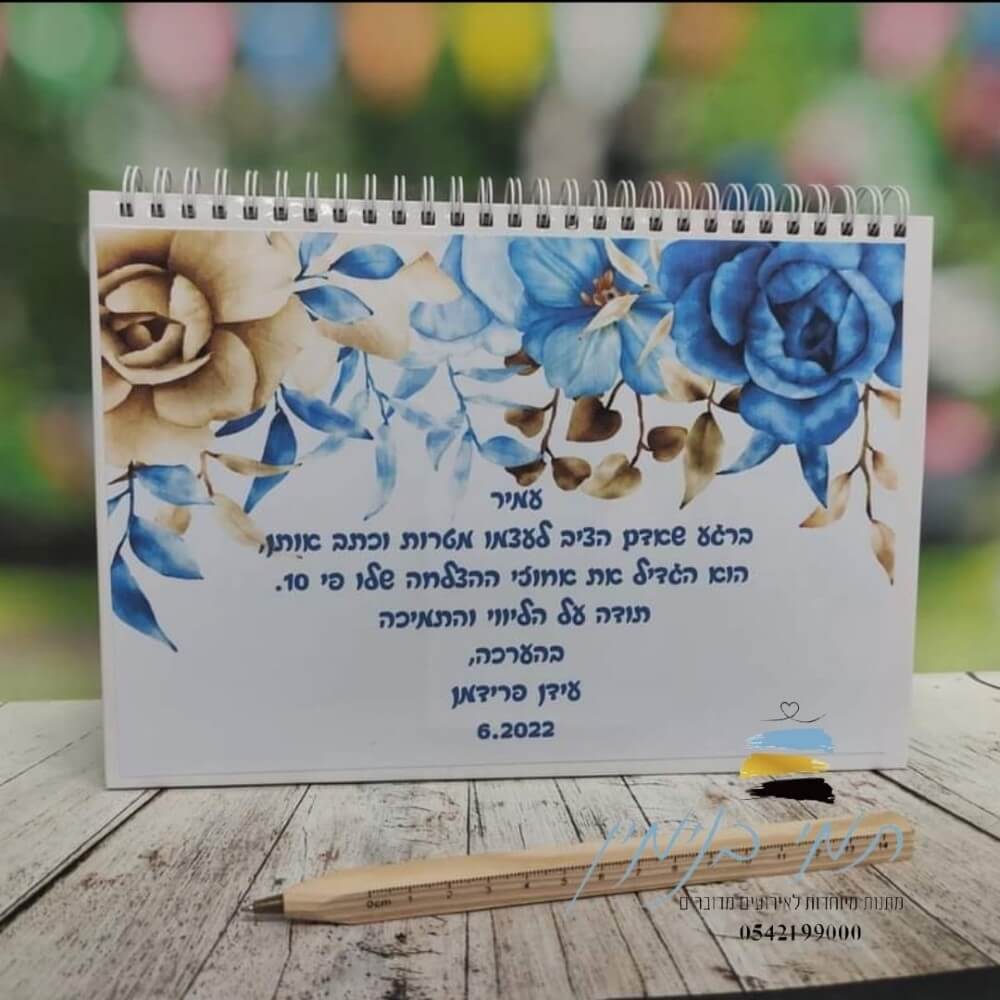 עמיר
ברגע שאדם הציב לעצמו מטרות וכתב אותן,
הוא הגדיל את אחוזי ההצלחה שלו פי 10.
תודה על הליווי והתמיכה
בהערכה,
עידן פרידמן
6.2022
תמי בנימין
0cm 1 2 3 4 5 6 7 8 9 11 14
מתנות מיוחדות לאירועים מדוברים
0542199000